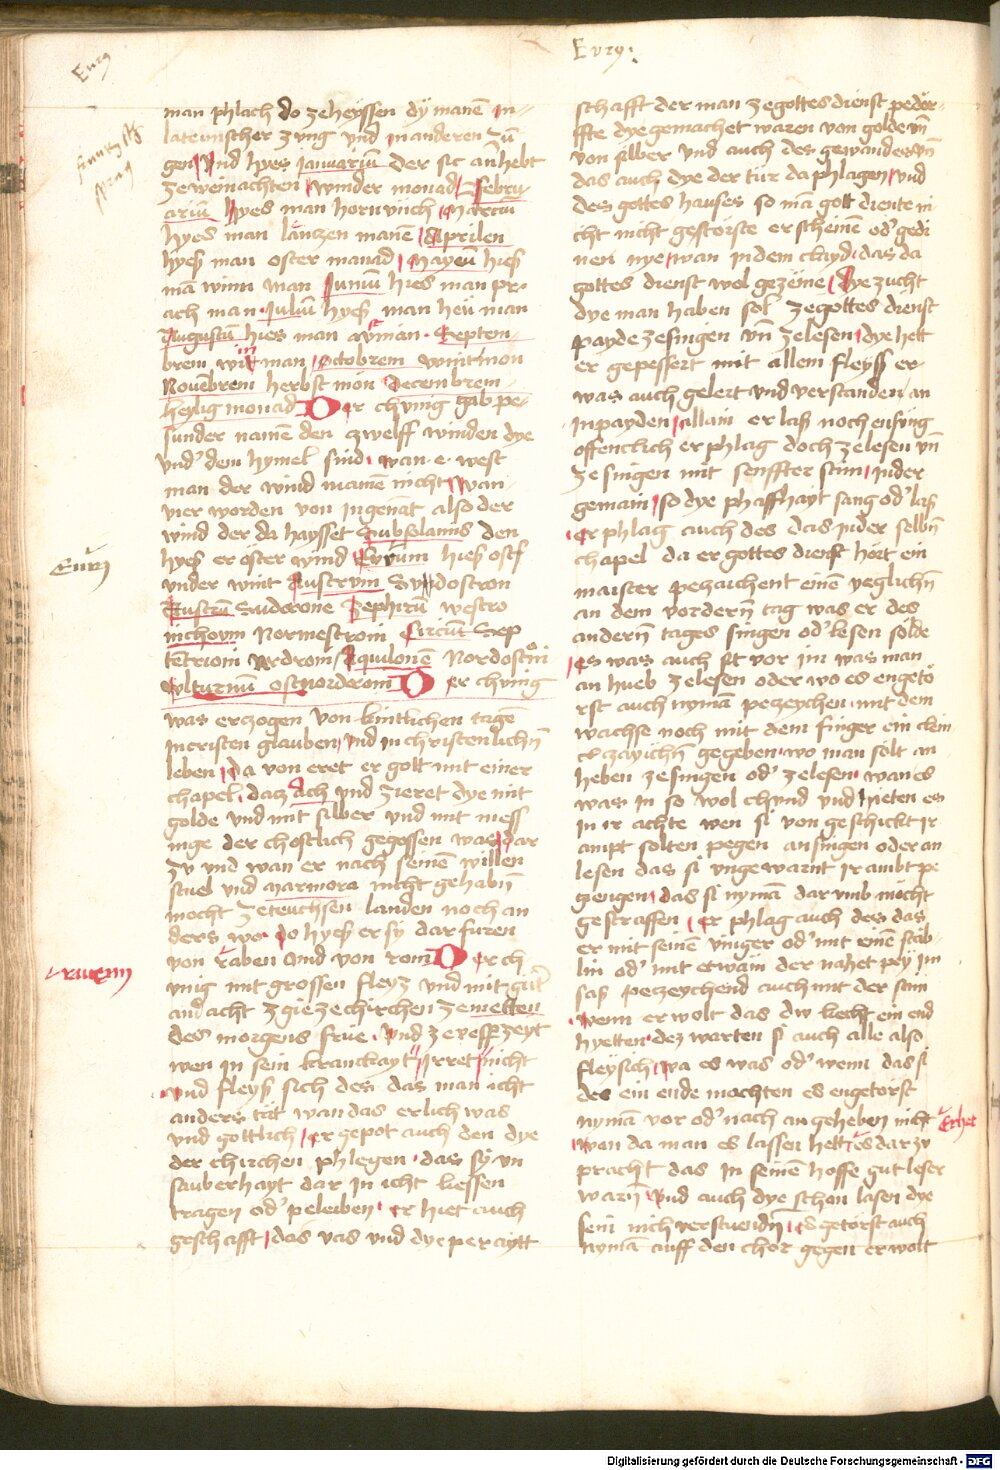 Eurg
Eury:
man phlach do zeheyssen dÿ manē in
lateinischer zung vnd in anderen zū
gen vnd hyes Januariū der sic an hebt
zeweinachten winder monad Febru
ariū hyes man hornunch Marciū
hyes man läntzen manē Aprilen
hyeß man oster manad Mayeū hieß
mā winn man Juniū hies man pr
ach man Juliū hyeß man heü man
Augustū hies man arnman Septem
brem wit man octobrem wintmon
Nouēbrem herbst mon Decembrem
heylig monad Der chunig gab pe
sunder namē den zwelff winden dye
vnd' dem hymel sind wan e west
man der wind namē nicht wan
vier worden von Ingenāt also der
wind der da haysset Subsolanus den
hyeß er oster wind Eurum hieß ost
vnder wint Austrum Sundostron
Austrū Suderone Zephirū westro
inchorum Normestroni Circiū Sep
tetrioni Nrdroni Aquilonē Nordostroni
Vulturnū ostnorderoni Der chunig
was erzogen von kintlichen tagē
In cristen glauben vnd in christenlichn̄
leben da von eret er gott mit einer
chapel daz ach vnd zieret dye mit
golde vnd mit silber vnd mit mess
inge der chostlich gegossen was dar
zu vnd wan er nach seinē willen
stuel vnd marmora nicht gehabn̄
mocht zeteuchsen landen noch an
ders wo Do hyeß er sy dar furen
von raben vnd von rom Der ch
unig mit grossen fleyz vnd mit guter
andacht zgie zechirchen zemetten
des morgens frue vnd zevesperzeyt
wen in sein kranckayt irret nicht
vnd fleyß sich des das man icht
anders tät wan das erlich was
vnd gottlich er gepot auch den dye
der chirchen phlegen das sy vn
sauberhayt dar In icht liessen
tragen od' peleiben er hiet auch
geschafft das vas vnd dye peraytt
schafft der man zegottes dienst peder
ffte dye gemachet waren von golde vn̄
von silber vnd auch des gewandes vn̄
das auch dye der tur da phlagen vnd
des gottes hauses so mā gott diente ni
cht nicht gestorste erscheinē od' gedi
nen nye wan in dem chlayd das da
gottes dienst wol gezēme Dye zucht
dye man haben sol zegottes dienst
payde zesingen vn̄ zelesen dye hett
er gepessert mit allem fleyss er
was auch gelert vnd verstanden an
Inpayden allain er laß noch ensung
offentlich er phlag doch zelesen vn̄
zesingen mit senffter stim in der
gemain so dye phaffhayt sang od' laß
er phlag auch des das in der selbn̄
chapel da er gottes dienst hort ein
maister pezaichent einē yeglichn̄
an dem vordern̄ tag was er des
andern̄ tages singen od' lesen solde
es was auch sit vor im was man
an hueb zelesen oder wo es engetö
rst auch nymā pezeychen mit dem
wachse noch mit dem finger ein clein
es zayichn̄ gegeben wo man solt an
heben zesingen od' zelesen wan es
was In so wol chund vnd hieten es
In ir achte wen si von geschickt ir
ampt solten pegen an singen oder an
lesen das si vngewarnt ir ambt pe
giengen das si nymā darumb mocht
gestraffen er phlag auch des das
er mit seinē vinger od' mit einē stäb
lin od' mit etwäm der nahet pey im
saß pezeychend auch mit der stim
wenn er wolt das dw leccht ein end
hyetten dez warten si auch alle also
fleysich wa es was od' wenn das si
des ein ende mochten es engetorst
nymā vor od' nach an geheben nicht
wan da man es lassen hett es dar zu
pracht das In seinē hoffe gut leser
warn̄ vnd auch dye schon lasen dye
sein nich verstuendn̄ es getorst auch
nymā auff den chor gegen er wolt
Eurg
raueny
Erhet